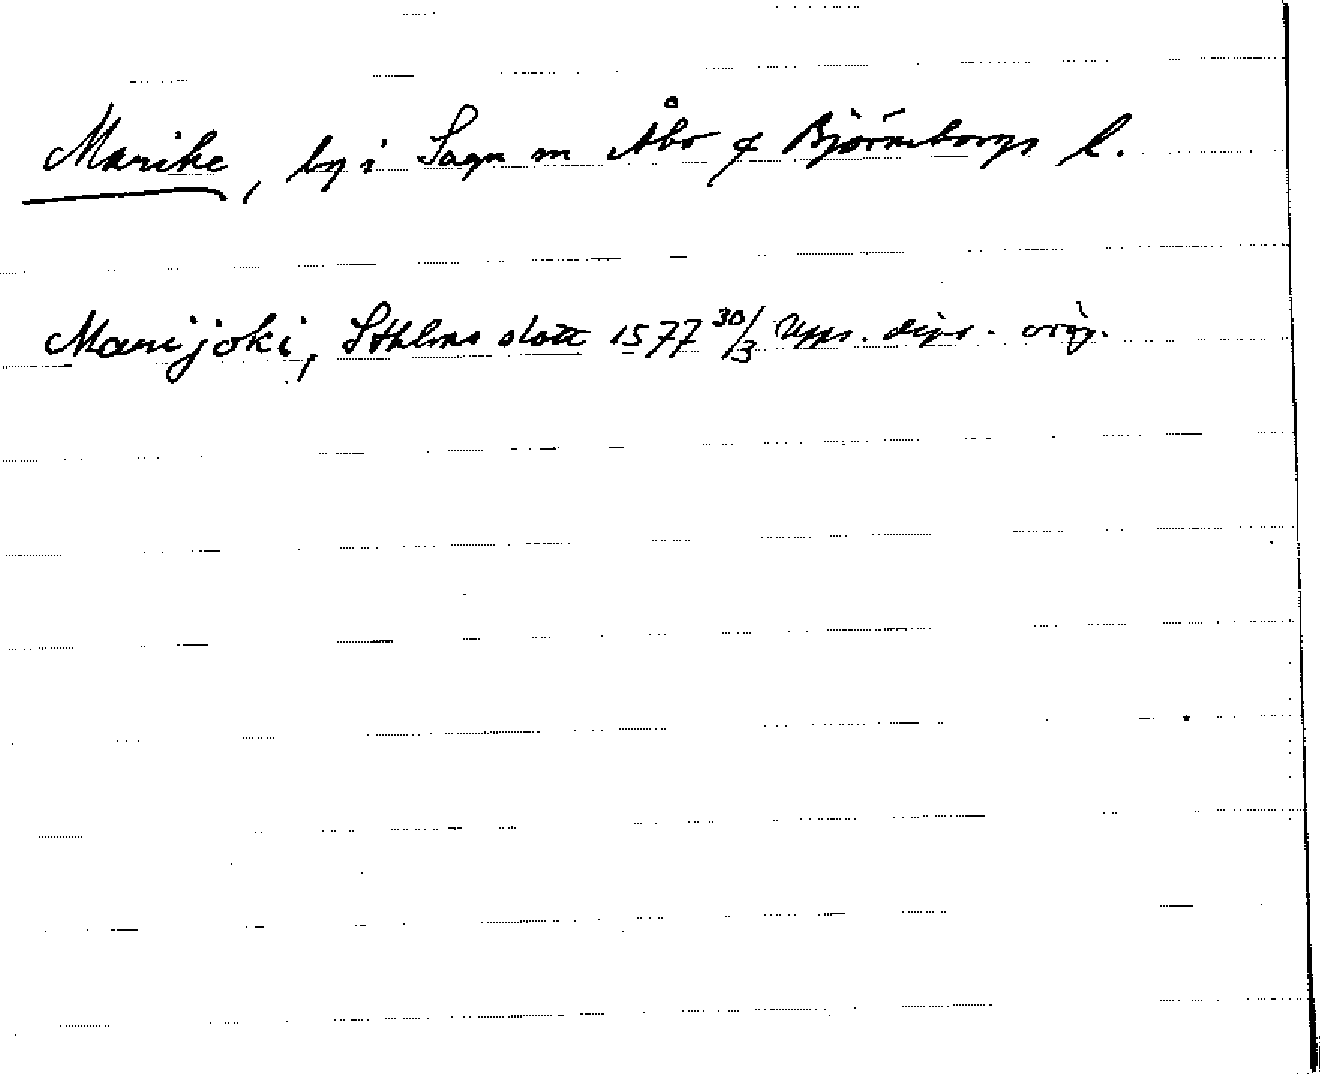 Marike, by i Sagu sn Åbo & Björneborgs l.
Marijoki, Sthlms slott 1577 30/3 Upps. dipl. orig.